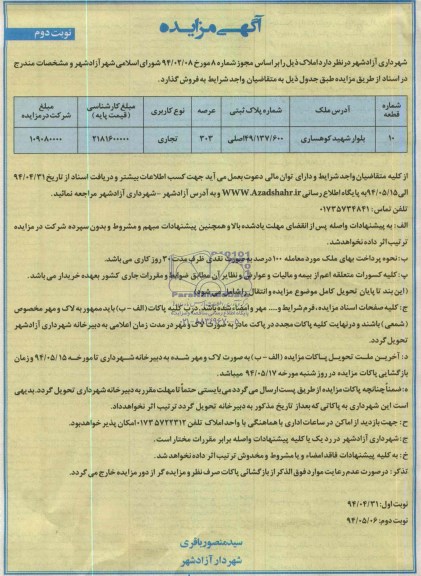 آگهی مزایده
نوبت دوم
شهرداری آزادشهر در نظر دارد املاک ذیل را بر اساس مجوز شماره ۸ مورخ ۹۴/۰۲/۰۸ شورای اسلامی شهر آزادشهر و مشخصات مندرج
در اسناد از طریق مزایده طبق جدول ذیل به متقاضیان واجد شرایط به فروش گذارد.
شماره قطعه
آدرس ملک
شماره پلاک ثبتی
عرصه
نوع کاربری
مبلغ کارشناسی (قیمت پایه)
مبلغ شرکت در مزایده
۱۰
بلوار شهید کوهساری
۴۹/۱۳۷/۶۰۰اصلی
۳۰۳
تجاری
۲۱۸۱۶۰۰۰۰۰
۱۰۹۰۸۰۰۰۰
از کلیه متقاضیان واجد شرایط و دارای توان مالی دعوت بعمل می آید جهت کسب اطلاعات بیشتر و دریافت اسناد از تاریخ ۹۴/۰۴/۳۱
الی ۹۴/۰۵/۱۵ به پایگاه اطلاع رسانی WWW.Azadshahr.ir و به آدرس آزادشهر -شهرداری آزادشهر مراجعه نمائید.
تلفن تماس: ۰۱۷۳۵۷۳۴۸۴۱
الف: به پیشنهادات واصله پس از انقضای مهلت یادشده بالا و همچنین پیشنهادات مبهم و مشروط و بدون سپرده شرکت در مزایده
ترتیب اثر داده نخواهد شد.
ب: نحوه پرداخت بهای ملک مورد معامله ۱۰۰ درصد به صورت نقدی ظرف مدت ۳۰ روز کاری می باشد.
پ: کلیه کسورات متعلقه اعم از بیمه و مالیات و عوارض و نظایر آن مطابق ضوابط و مقررات جاری کشور بعهده خریدار می باشد.
(این بند تا پایان تحویل کامل موضوع مزایده و انتقال را شامل می شود)
ج: کلیه صفحات اسناد مزایده، فرم شرایط و.... مهر و امضاء شده باشد. درب کلیه پاکات (الف - ب) باید ممهور به لاک و مهر مخصوص
(شمعی) باشند و در نهایت کلیه پاکات مجدد در پاکت مادر به صورت لاک و مهر در مدت زمان اعلامی به دبیرخانه شهرداری آزادشهر
تحویل گردد.
د: آخرین مهلت تحویل پاکات مزایده (الف - ب) به صورت لاک و مهر شده به دبیرخانه شهرداری تا مورخه ۹۴/۰۵/۱۵ و زمان
بازگشایی پاکات مزایده در روز شنبه مورخه ۹۴/۰۵/۱۷ میباشد.
ه: ضمناً چنانچه پاکات مزایده از طریق پست ارسال می گردد می بایستی حتماً تا مهلت مقرر به دبیرخانه شهرداری تحویل گردد. بدیهی
است این شهرداری به پاکاتی که بعد از تاریخ مذکور به دبیرخانه تحویل گردد ترتیب اثر نخواهد داد.
ح: جهت بازدید از اماکن در ساعات اداری با هماهنگی با واحد املاک تلفن ۰۱۷۳۵۷۲۲۳۱۲ امکان پذیر خواهد بود.
چ: شهرداری آزادشهر در رد یک یا کلیه پیشنهادات واصله برابر مقررات مختار است.
خ: به کلیه پیشنهادات فاقد امضاء و یا مشروط و مخدوش ترتیب اثر داده نخواهد شد.
تذکر: در صورت عدم رعایت موارد فوق الذکر از بازگشائی پاکات صرف نظر و مزایده گر از دور مزایده خارج می گردد.
نوبت اول: ۹۴/۰۴/۳۱
نوبت دوم: ۹۴/۰۵/۰۶
سید منصور باقری
شهردار آزادشهر